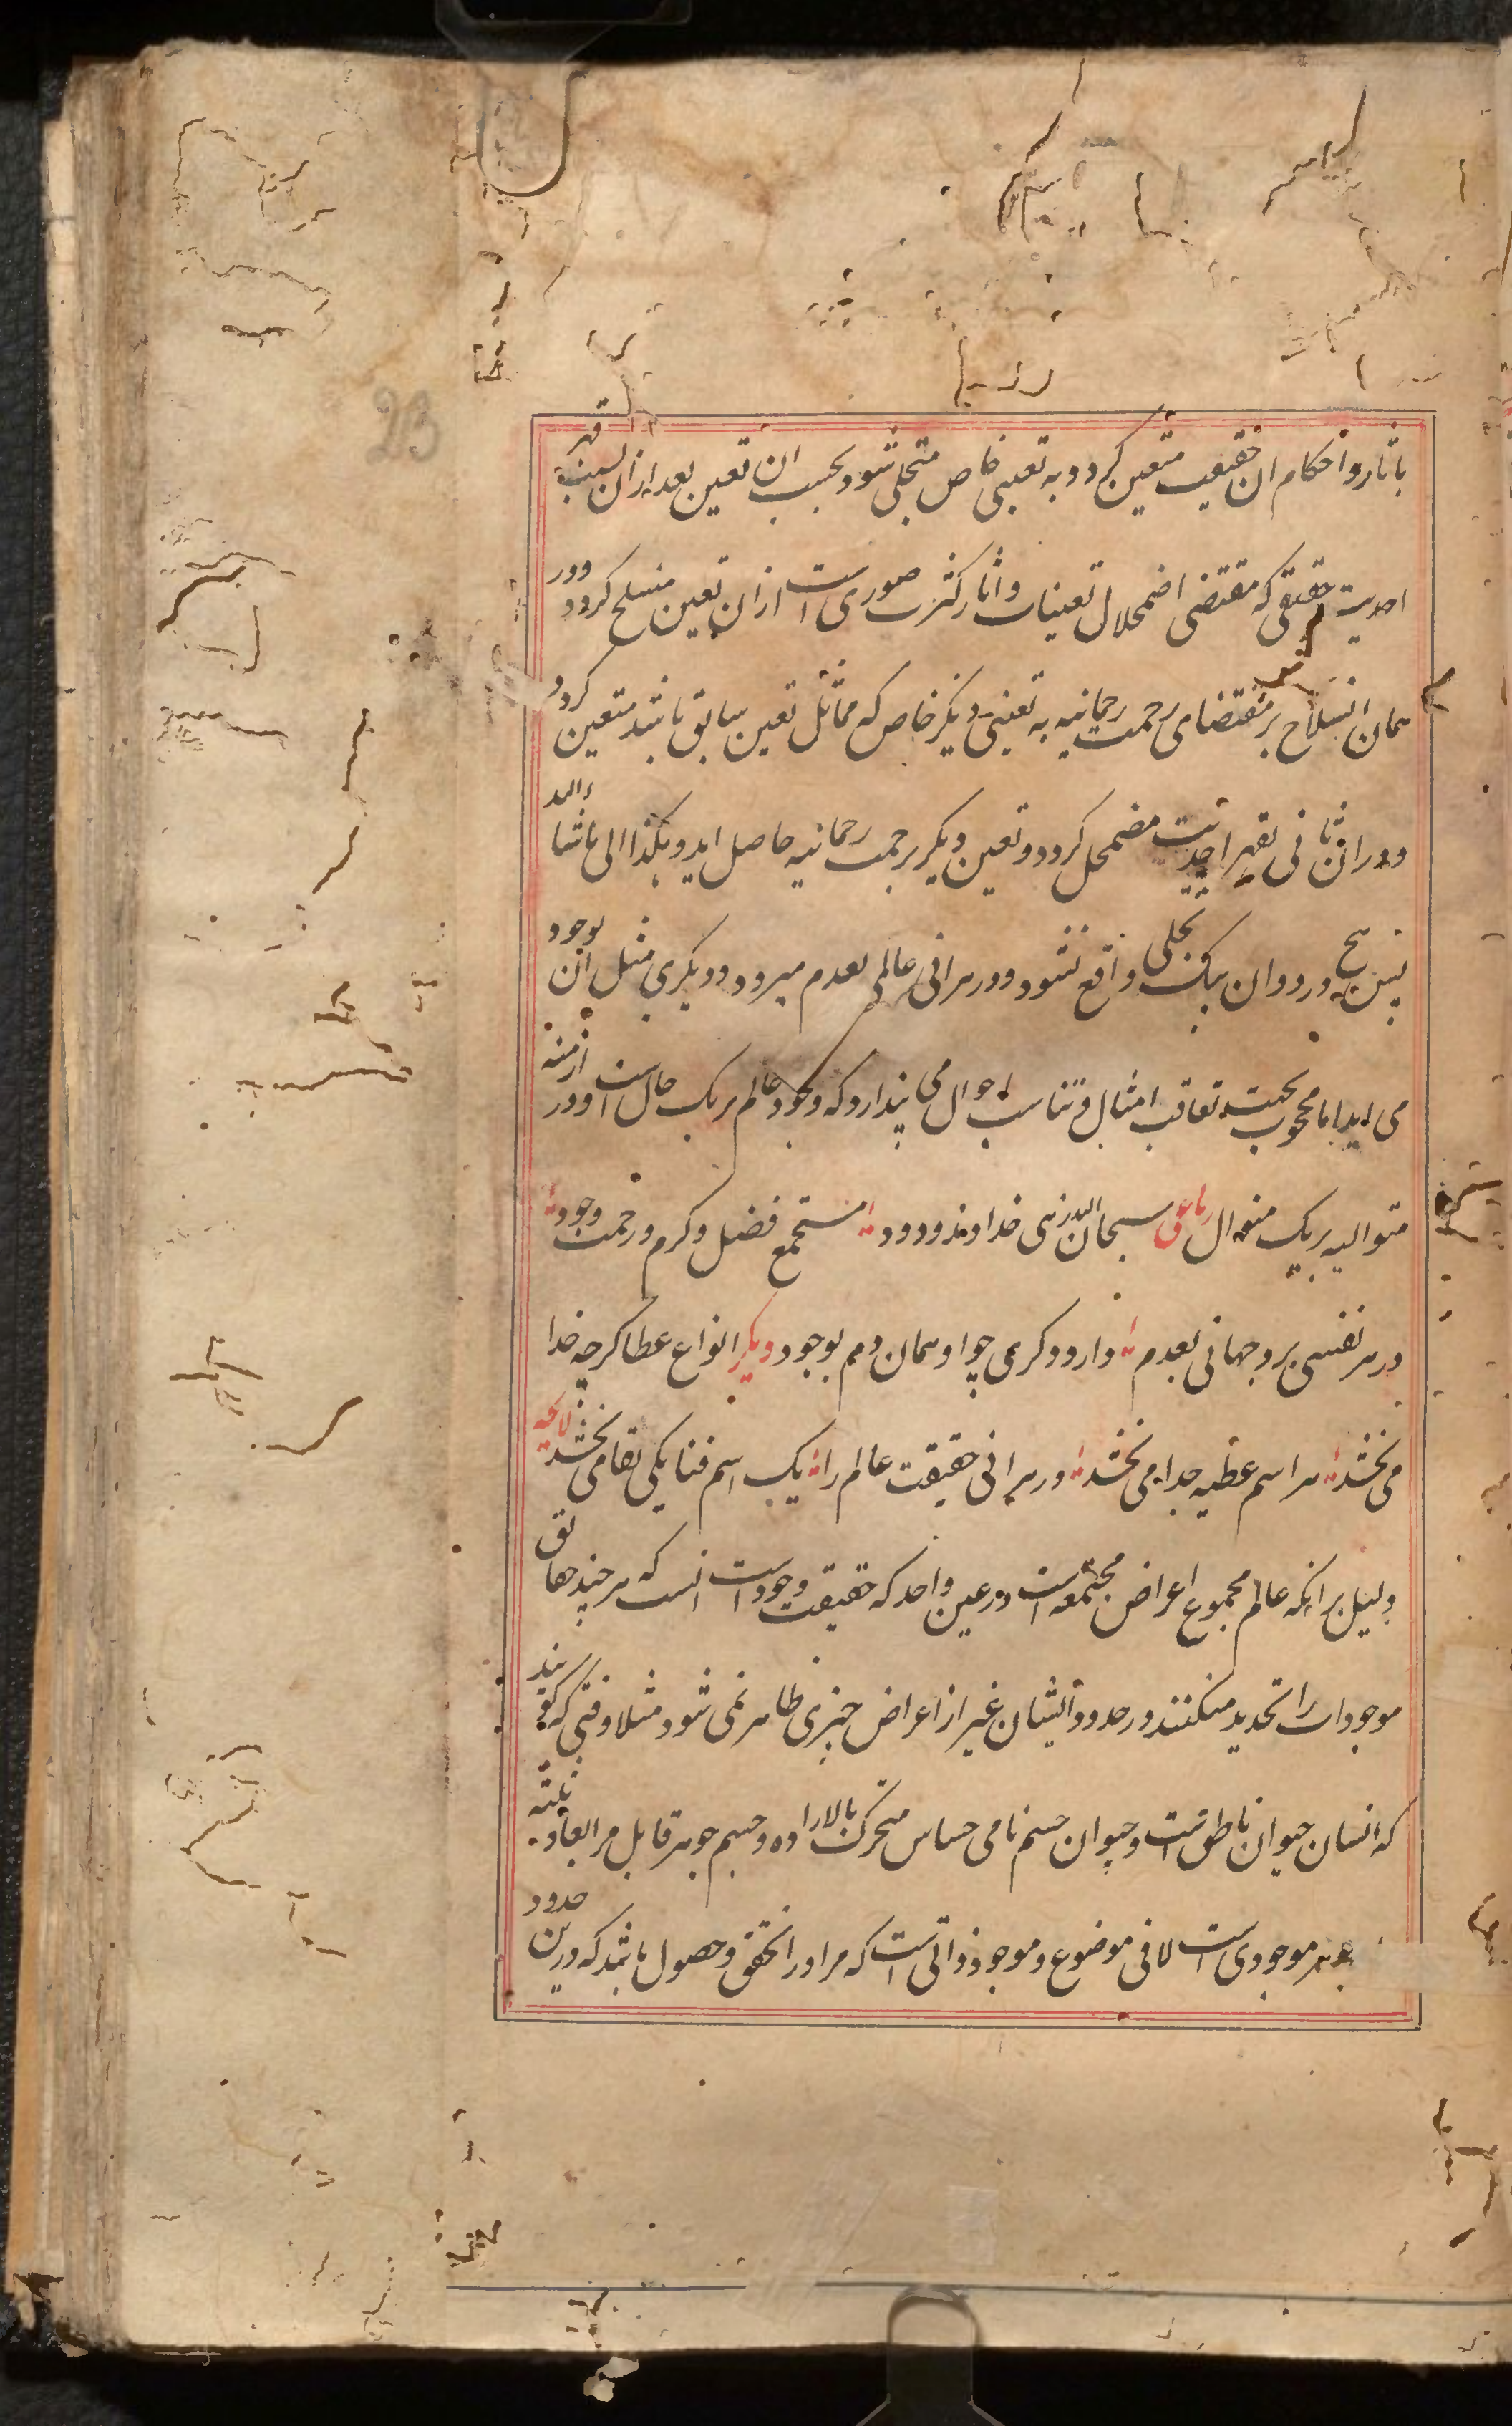 23
باثار و احکام ان حقیقت متعین کردد و به تعینی خاص متجلی شود بحسب ان تعین بعد ازان بسبب قهر
احدیت حقیقی که مقتضی اضمحلال تعینات و اثار کثرت صوری است ازان تعین منسلخ کردد و در
همان انسلاخ بر مقتضای رحمت رحمانیه به تعینی دیکر خاص که مماثل تعین سابق باشد متعین کردد
و در ان ثانی بقهر احدیت مضمحل کردد و تعین دیکر برحمت رحمانیه حاصل اید و هکذا الی ما شاء الله
پس هیچ در دو ان بیک تجلی واقع نشود و در هر انی عالمی بعدم میرود و دیکری مثل ان بوجود
می اید اما محجوب بجهت تعاقب امثال و تناسب احوال می پندارد که وجود عالم بر یک حال است و در ازمنه
متوالیه بر یک منوال رباعی سبحان الله زهی خداوند ودود مستجمع فضل و کرم و رحمت وجود
در هر نفسی برد جهانی بعدم وارد دکری چو او همان دم بوجود دیکر انواع عطا کرچه خدا
می بخشد هر اسم عطیه جدا می بخشد در هر انی حقیقت عالم را یک اسم فنا یکی بقا می بخشد لایحه
دلیل بر انکه عالم مجموع اعراض مجتمعه است در عین واحد که حقیقت وجود است انست که هر چند حقایق
موجودات را تحدید میکنند در حدود ایشان غیر از اعراض چیزی ظاهر نمی شود مثلا وقتی که کویند
که انسان حیوان ناطق است و حیوان جسم نامی حساس متحرک بالاراده و جسم جوهر قابل مر ابعاد ثلثه
جوهر موجودی است لا فی موضوع و موجود ذاتی است که مر او را تحقق و حصول باشد که درین حدود